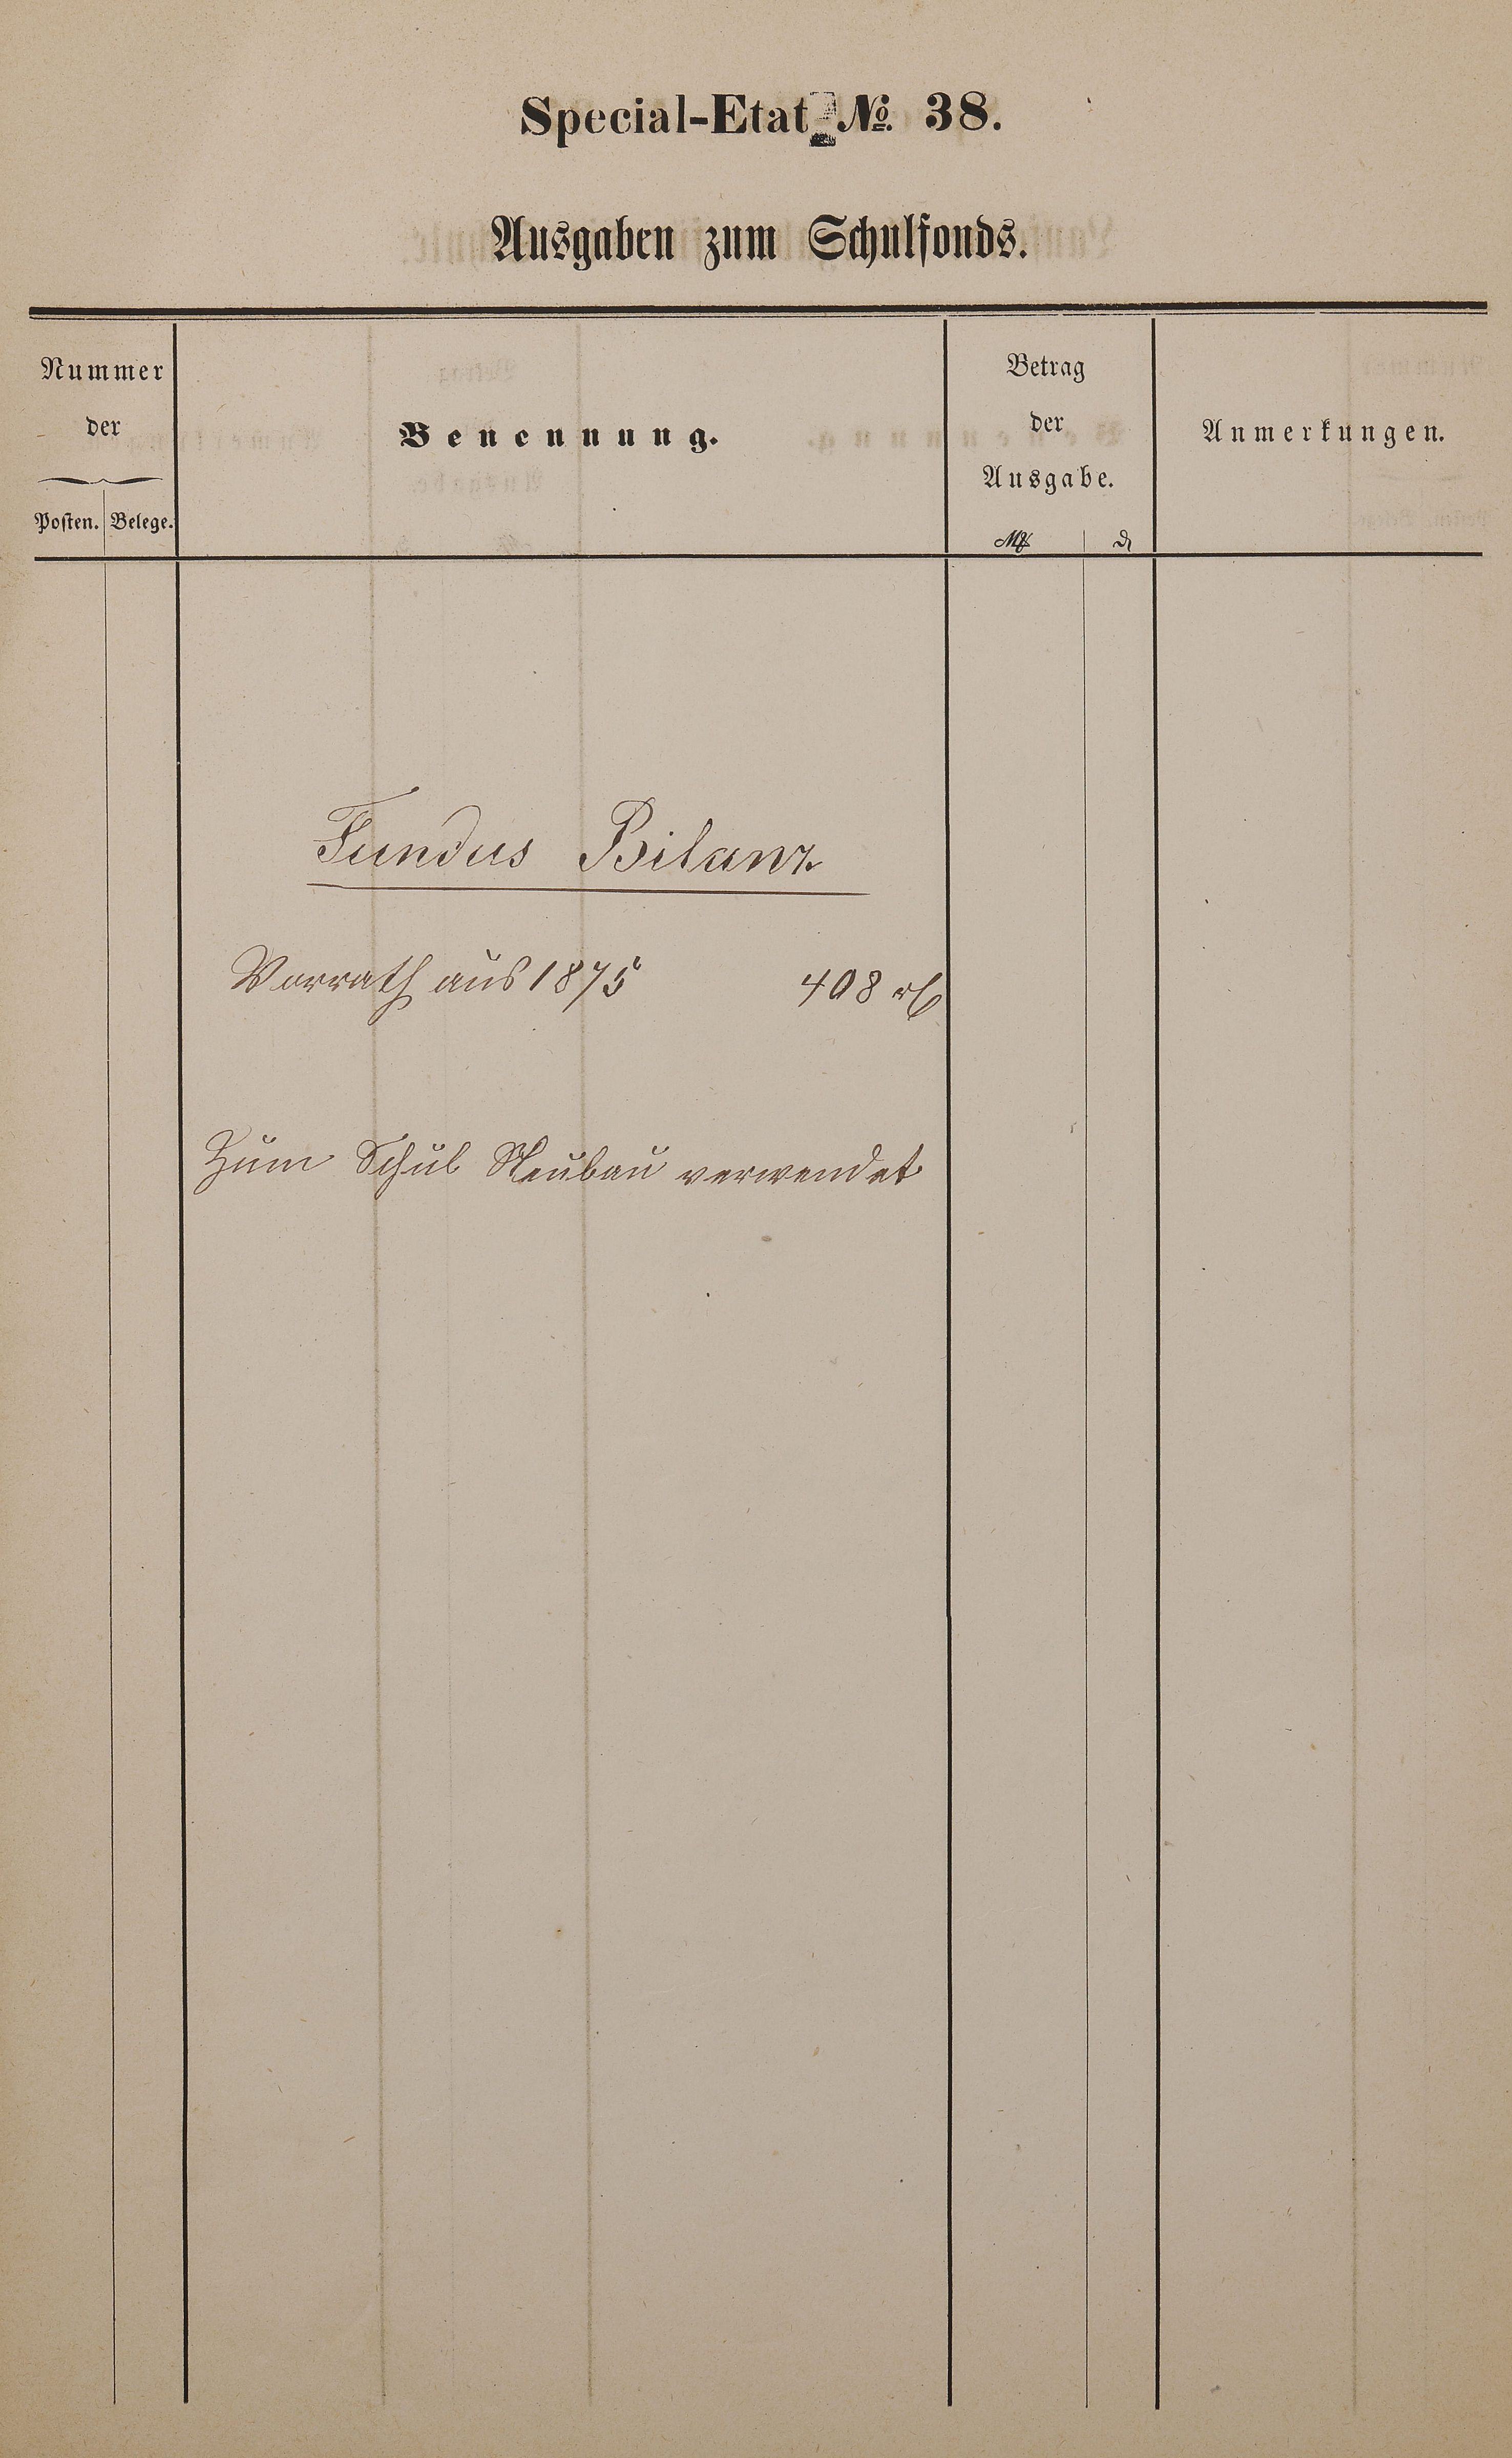 Special-Etat № 38.
Ausgaben zum Schulfonds.
Nummer
der
Posten. Belege.
Benennung.
Betrag
der
Ausgabe.
Anmerkungen.
Fundus Bilanz
Vorrath aus 1875 408
Zum Schul Neubau verwendet